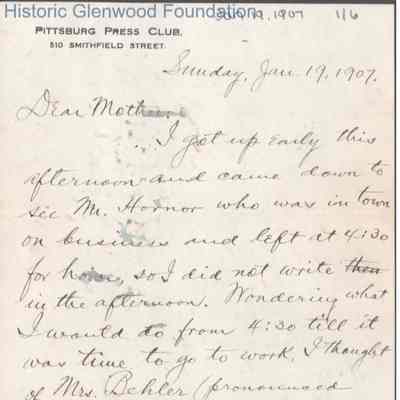 Historic Glenwood Foundation
Jan 19, 1907 1/6
PITTSBURG PRESS CLUB,
510 SMITHFIELD STREET.
Sunday, Jan. 19, 1907.
Dear Mother:
I got up early this
afternoon and came down to
see Mr. Hornor who was in town
on business and left at 4:30
for home, so I did not write then
in the afternoon. Wondering what
I would do from 4:30 till it
was time to go to work, I thought
of Mrs. Behler (pronounced